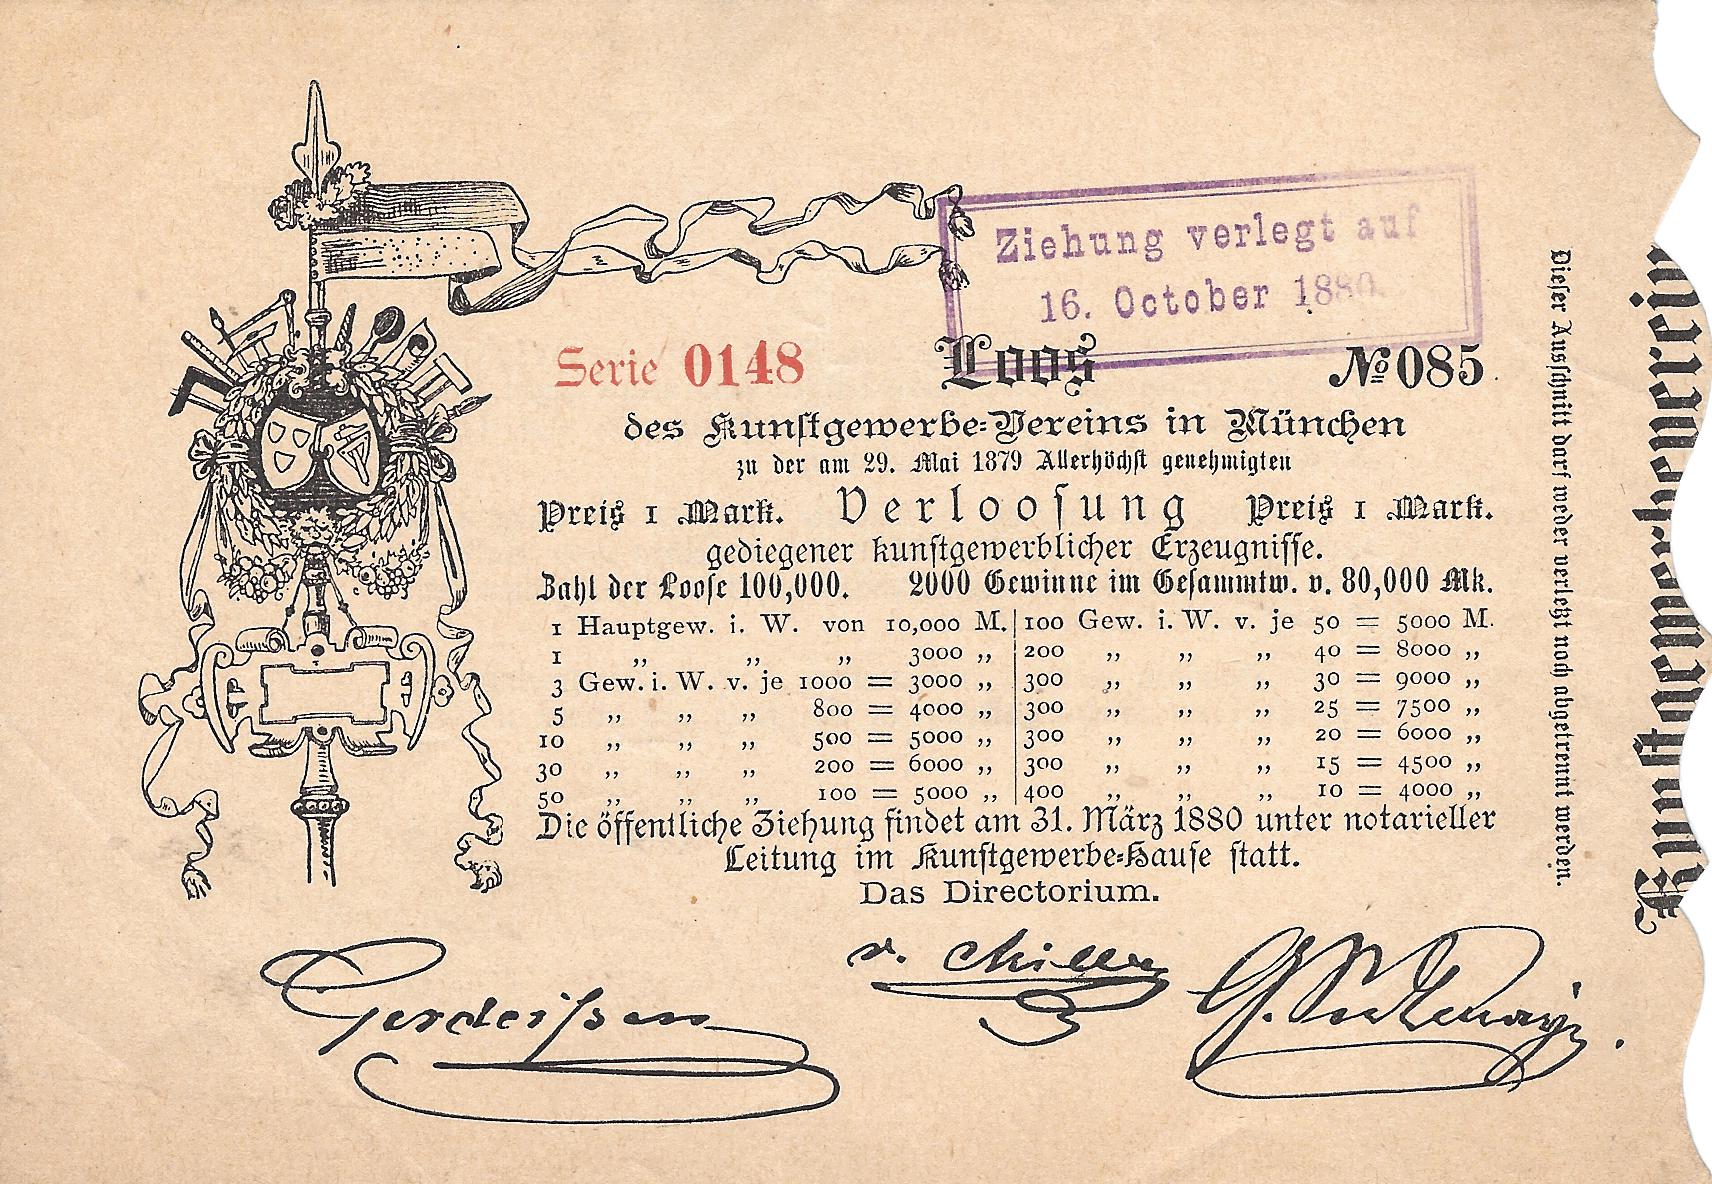 Ziehung verlegt auf
16. October 1880.
Serie 0148 Loos № 085
des Kunstgewerbe-Vereins in München
zu der am 29. Mai 1879 Allerhöchst genehmigten
Preis 1 Mark. Verloosung Preis 1 Mark.
gediegener kunstgewerblicher Erzeugnisse.
Zahl der Loose 100,000. 2000 Gewinne im Gesammtw. v. 80,000 Mk.
1 Hauptgew. i. W. von 10,000 M.
1 „ „ „ 3000 „
3 Gew. i. W. v. je 1000 = 3000 „
5 „ „ „ 800 = 4000 „
10 „ „ „ 500 = 5000 „
30 „ „ „ 200 = 6000 „
50 „ „ „ 100 = 5000 „
100 Gew. i. W. v. je 50 = 5000 M.
200 „ „ „ 40 = 8000 „
300 „ „ „ 30 = 9000 „
300 „ „ „ 25 = 7500 „
300 „ „ „ 20 = 6000 „
300 „ „ „ 15 = 4500 „
400 „ „ „ 10 = 4000 „
Die öffentliche Ziehung findet am 31. März 1880 unter notarieller
Leitung im Kunstgewerbe-Hause statt.
Das Directorium.
v. Miller
Dieser Ausschnitt darf weder verletzt noch abgetrennt werden.
Kunstgewerbeverein